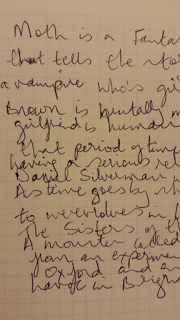 Moth is a Fanta
that tells the sto
a vampire who's gi
Brown is brutally m
girlfriend is human
that period of time
having a serious rel
Daniel Silverman w
As time goes by sh
to werewolves in
The Sisters of th
A monster called
from an experimen
Oxford and en
havoc in Brigh